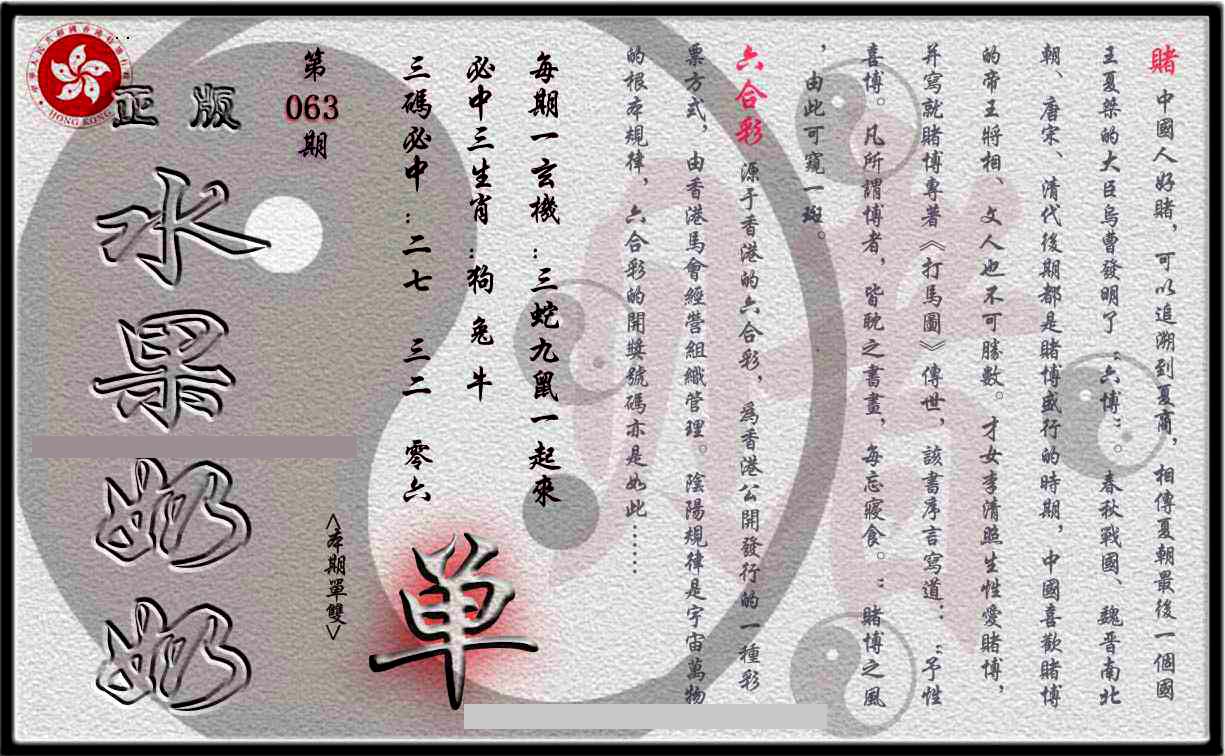 賭 中國人好賭，可以追溯到夏商，相傳夏朝最後一個國
王夏桀的大臣烏曹發明了“六博”。春秋戰國、魏晋南北
朝、唐宋、清代後期都是賭博盛行的時期，中國喜歡賭博
的帝王將相、文人也不可勝數。才女李清照生性愛賭博，
并寫就賭博專著《打馬圖》傳世，該書序言寫道：“予性
喜博。凡所謂博者，皆耽之書畫，每忘寢食。”賭博之風
，由此可窺一斑。
六合彩 源于香港的六合彩，為香港公開發行的一種彩
票方式，由香港馬會經營組織管理。陰陽規律是宇宙萬物
的根本規律，六合彩的開獎號碼亦是如此……
每期一玄機：三蛇九鼠一起來
必中三生肖：狗 兔 牛
三碼必中：二七 三二 零六
单
<本期單雙>
第
063
期
正版
水果奶奶
HONG KONG